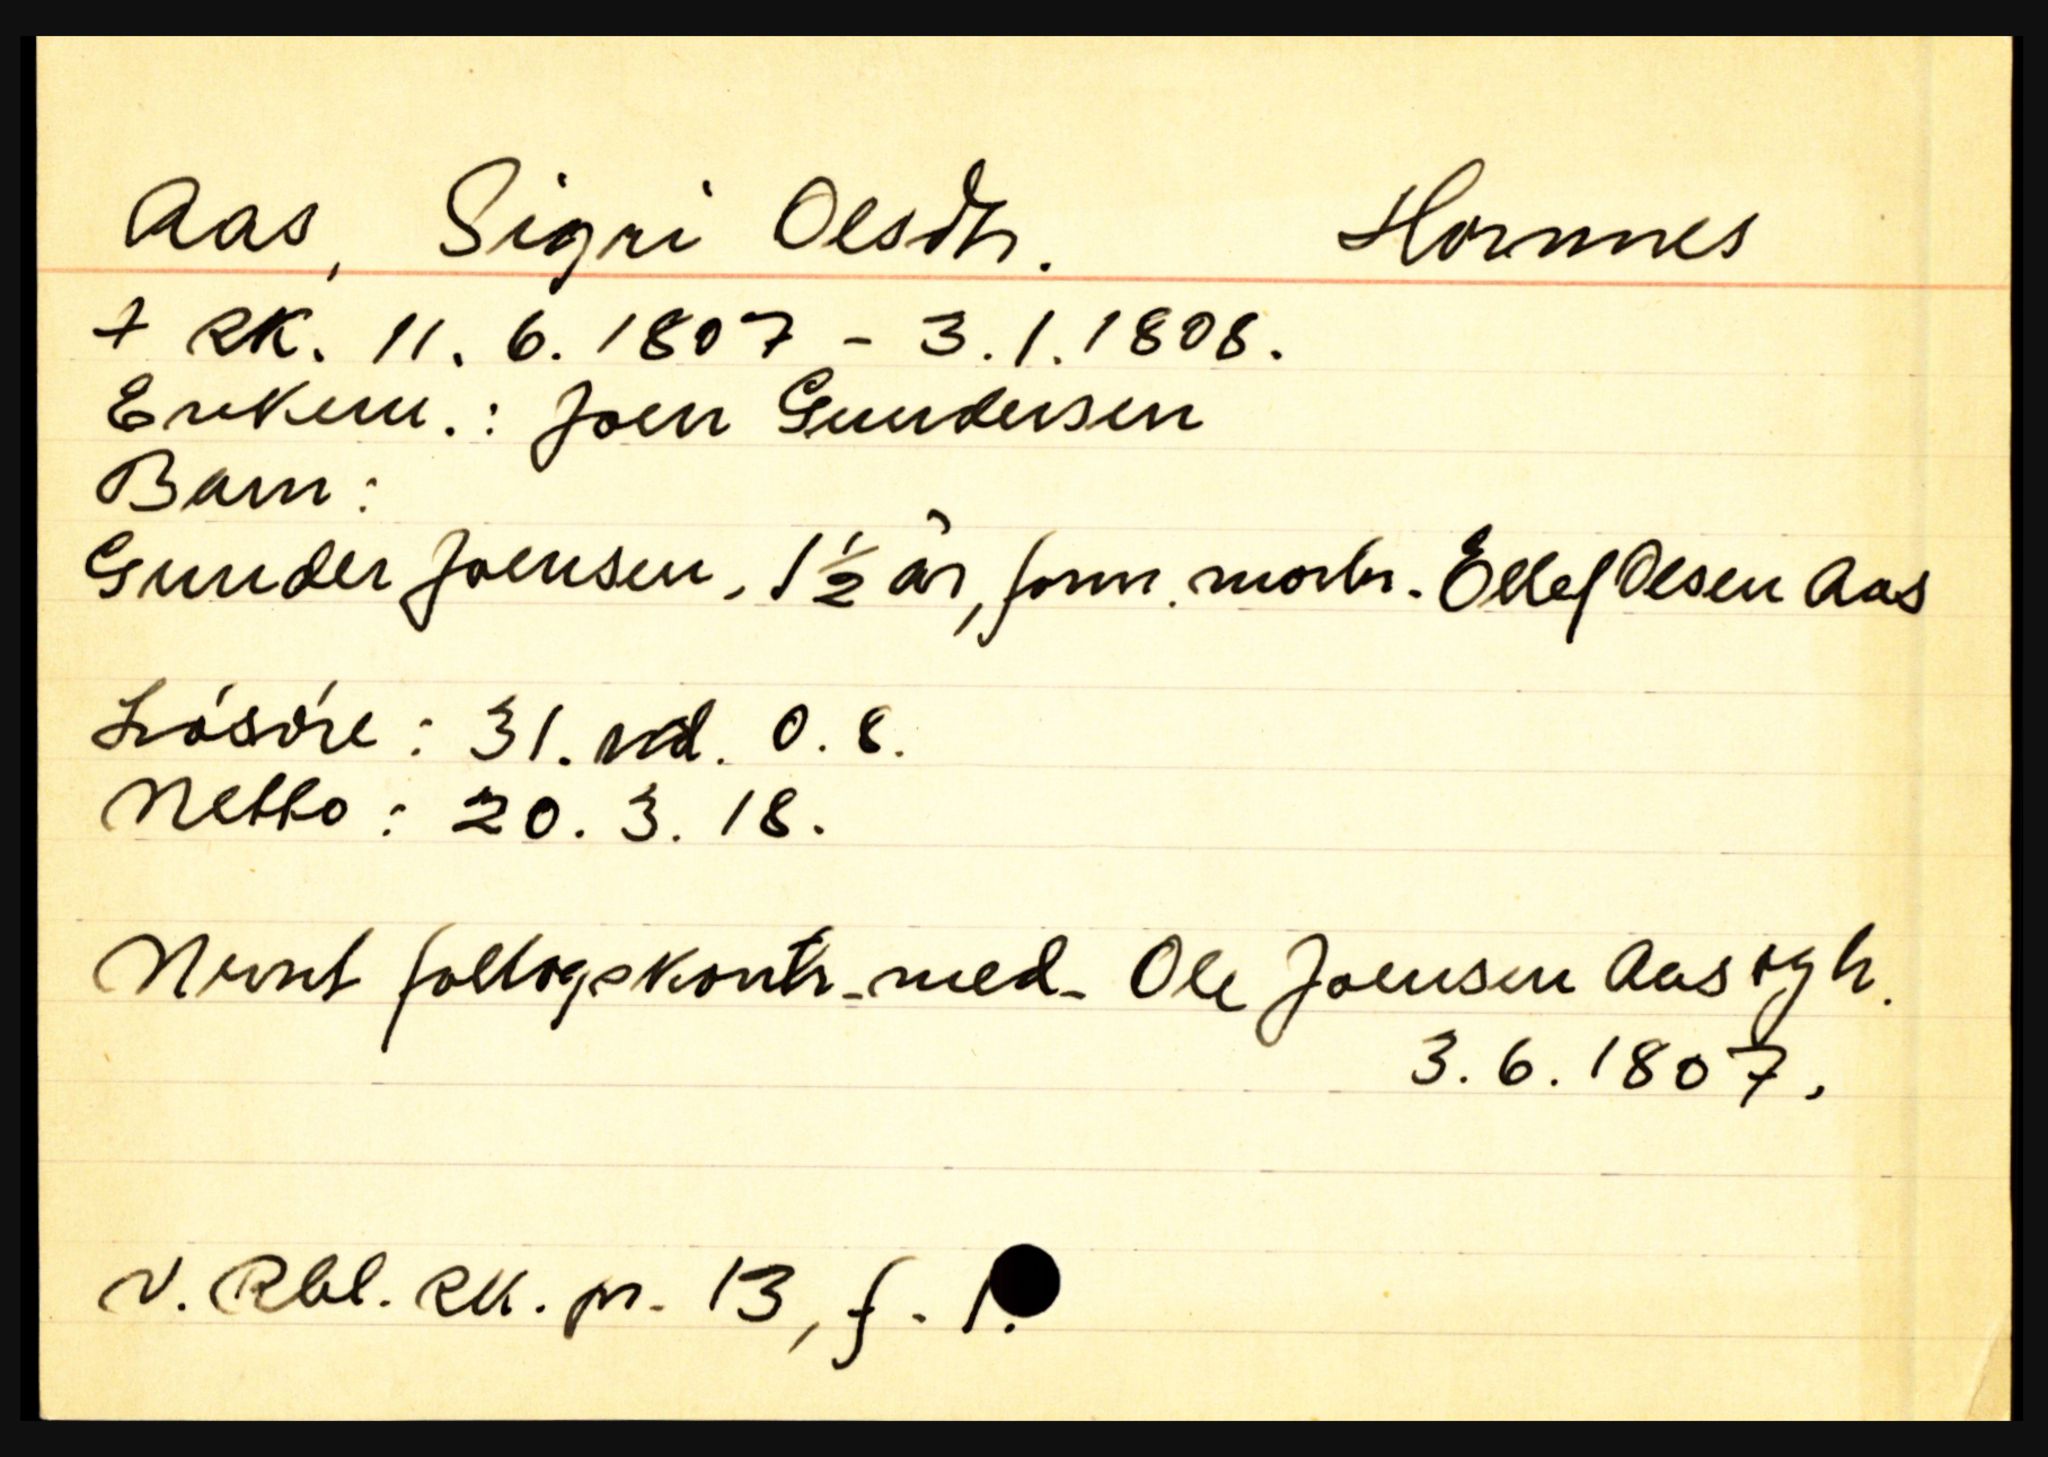 Aas, Sigri Olsdtr. Hornnes
+ RK. 11. 6. 1807 - 3. 1. 1808.
Enkem.: Joen Gundersen
Barn:
Gunder Joensen, 1½ år, form. morbr. Ellef Olsen Aas
Lösöre: 31. rd. 0. 8.
Netto: 20. 3. 18.
Nevnt follogskontr. med Ole Joensen Aas og h.
3. 6. 1807.
V. Rbl. RK. pr. 13, f. 1.